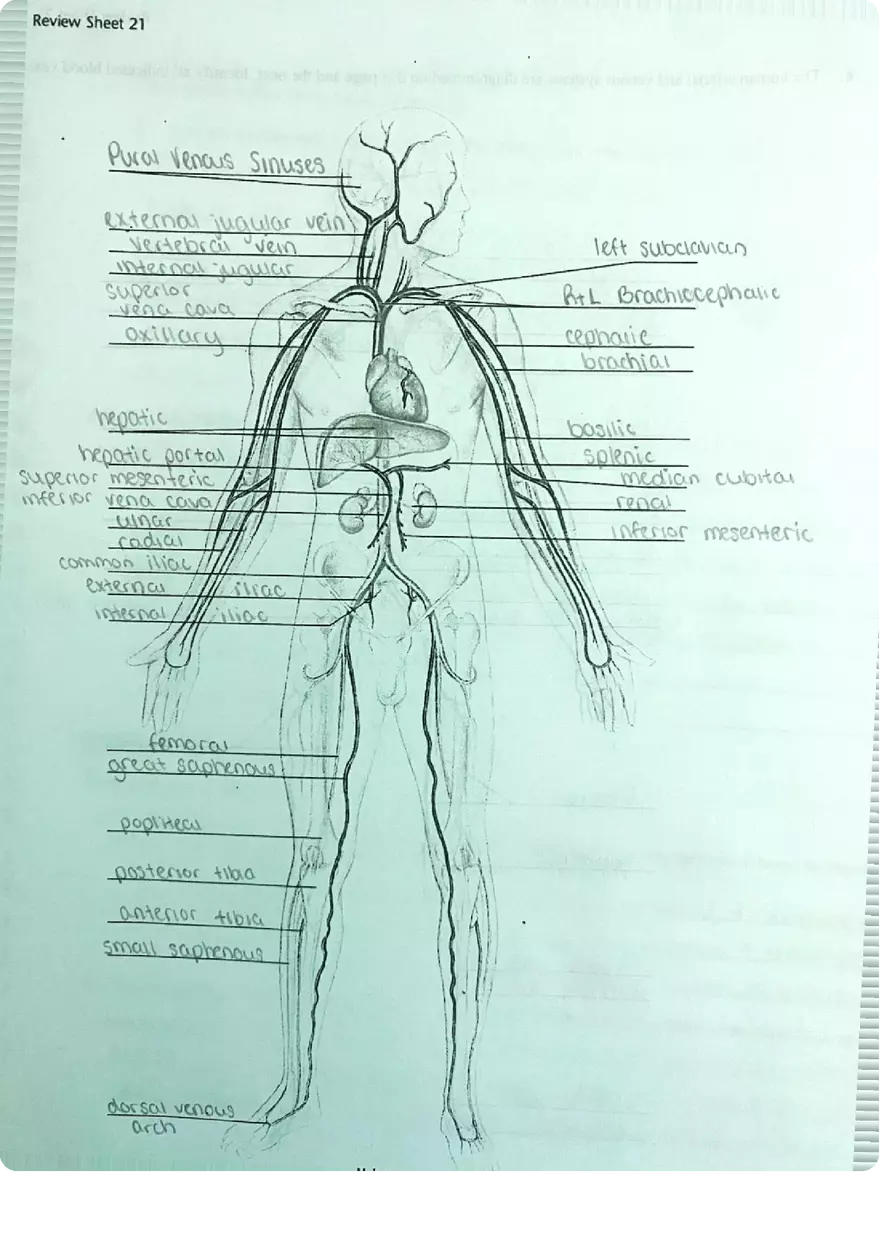 Review Sheet 21
Pural Venous Sinuses
external jugular vein
vertebral vein
internal jugular
superior
vena cava
axillary
hepatic
hepatic portal
superior mesenteric
inferior vena cava
ulnar
radial
common iliac
external iliac
internal iliac
femoral
great saphenous
popliteal
posterior tibia
anterior tibia
small saphenous
dorsal venous
arch
left subclavian
R+L Brachiocephalic
cephalic
brachial
basilic
splenic
median cubital
renal
inferior mesenteric